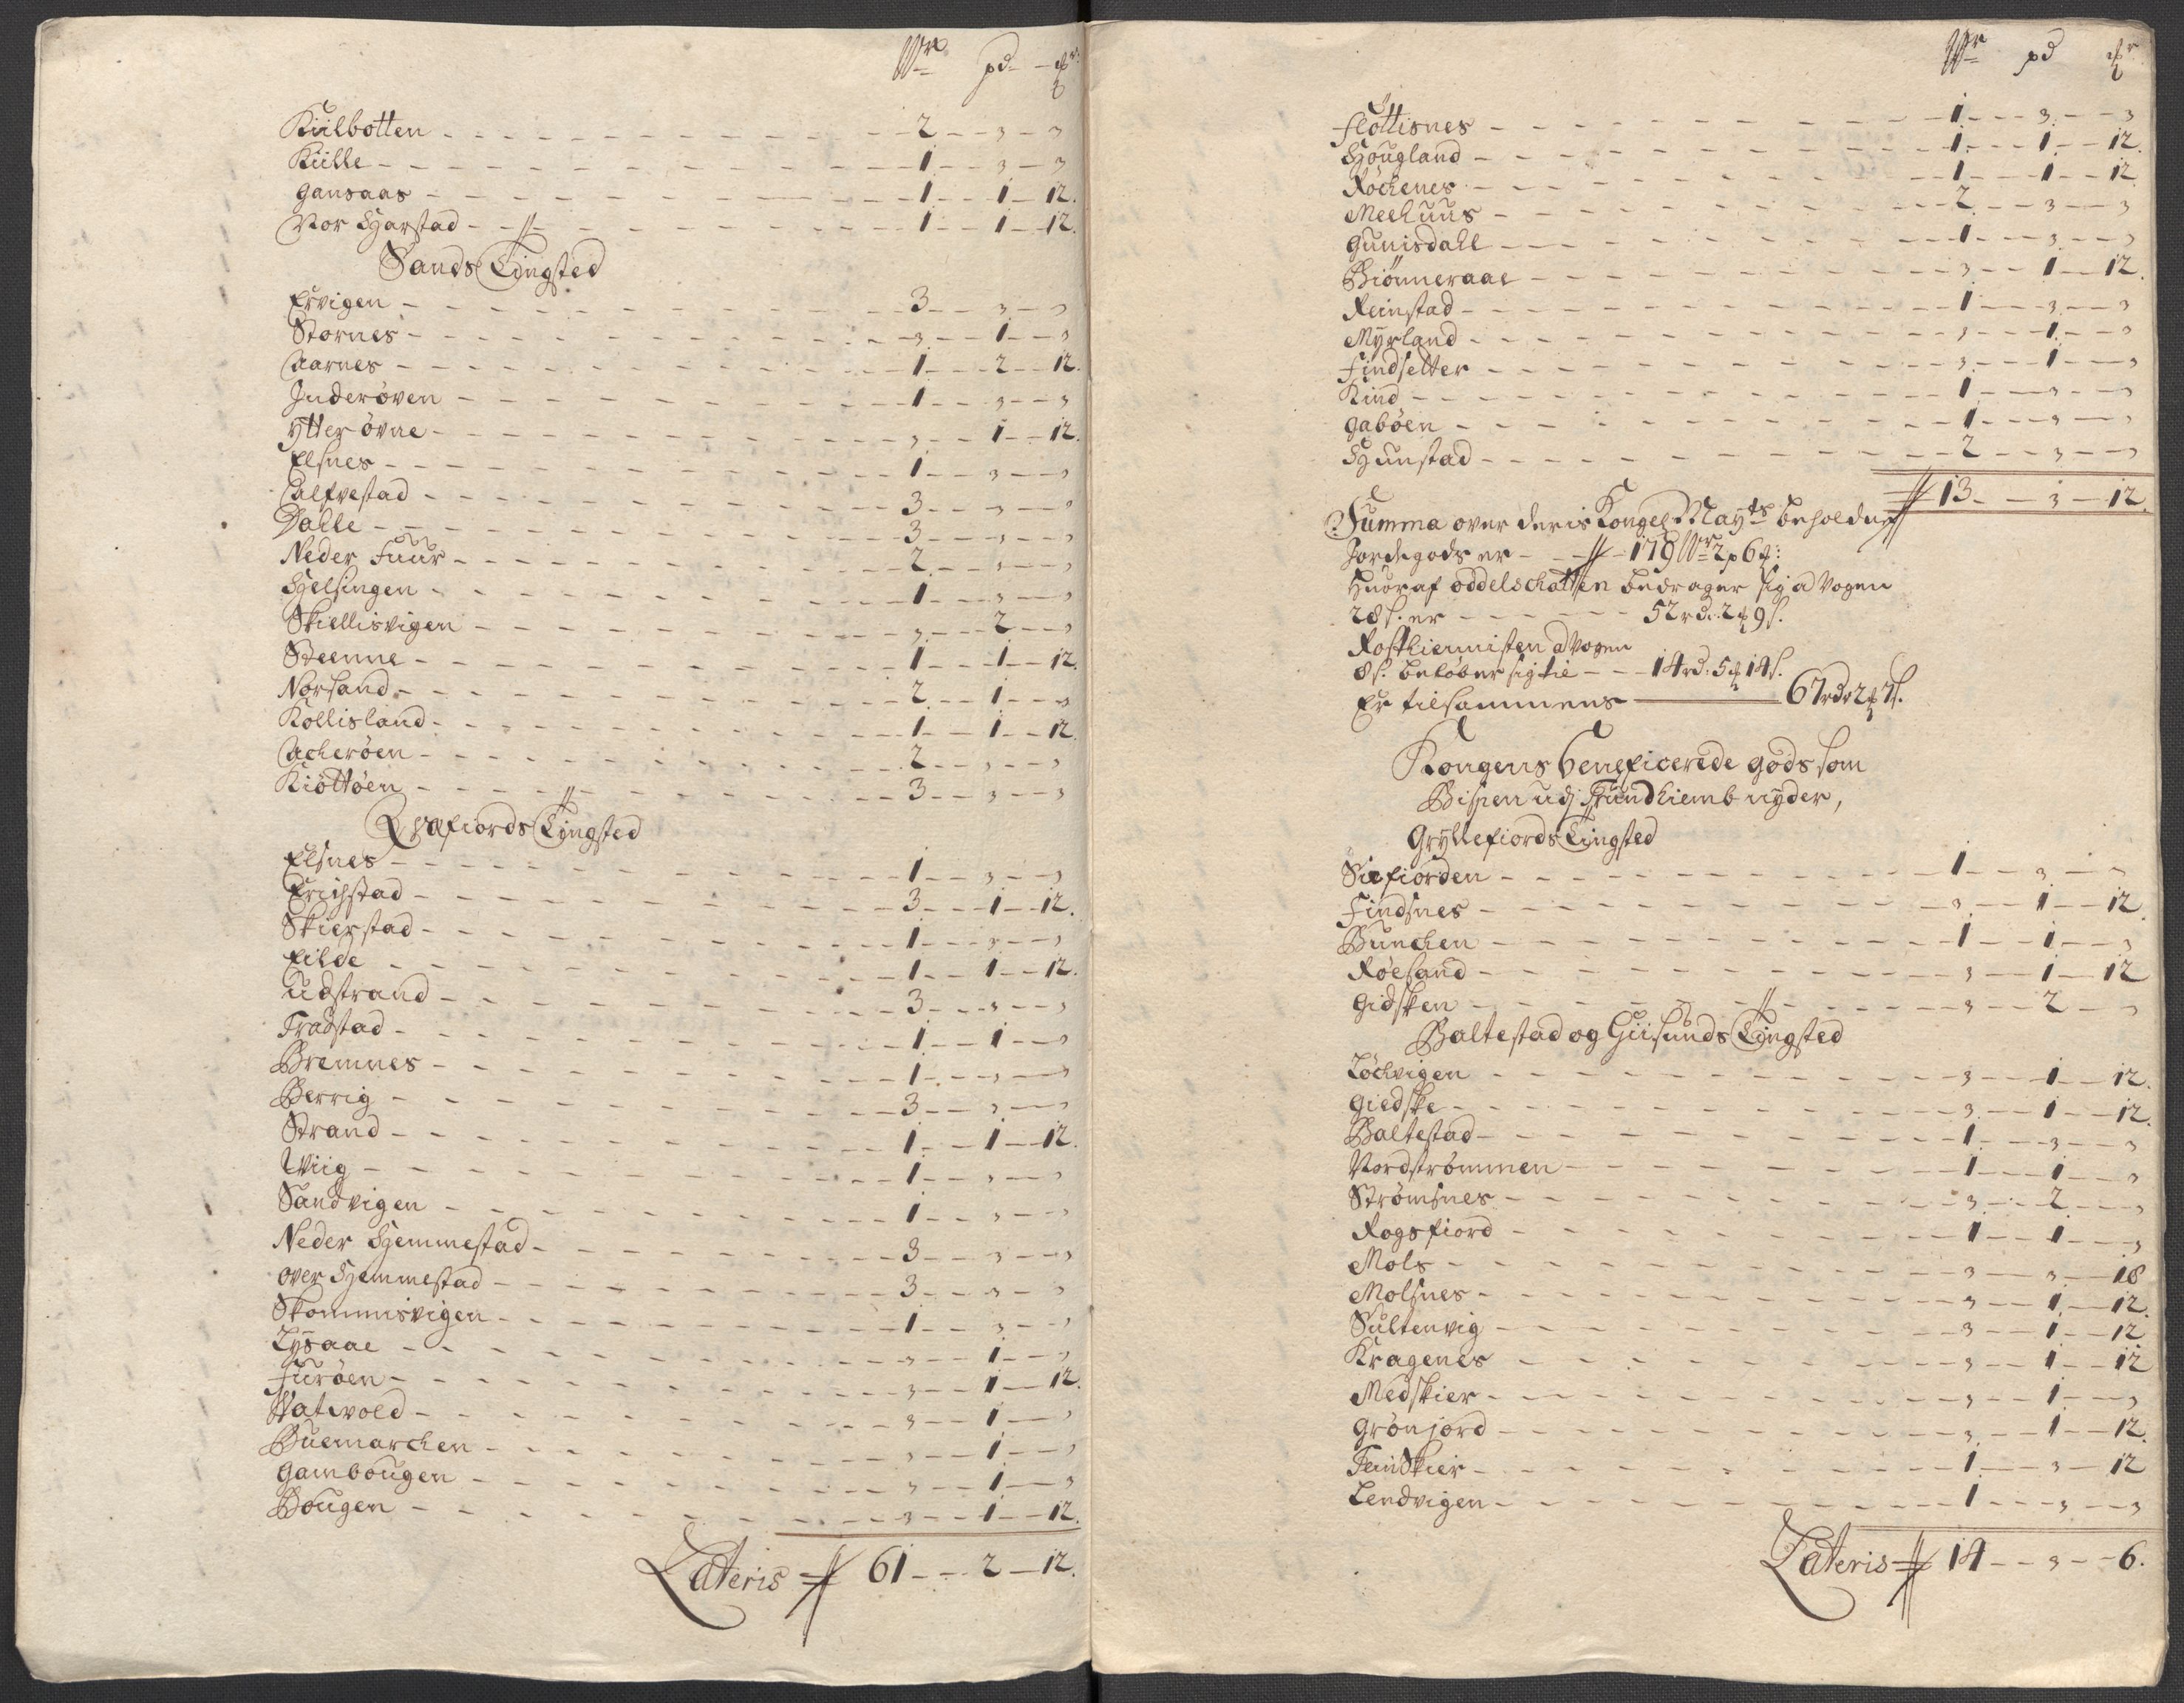 Wr pd
Kiilbotten - 2 - 3 - 3
Kiille - 1 - 3 - 3
Gansaas - 1 - 1 - 12.
Nor Harstad - 1 - 1 - 12.
Sands Tingsted
Ervigen - 3 - 3 - 3
Stornes - 3 - 1 - 3
Aarnes - 1 - 2 - 12.
Inderøven - 1 - 3 - 3
Ytterøvne - 3 - 1 - 12.
Elsnes - 1 - 3 - 3
Calfvestad - 3 - 3 - 3
Dahle - 3 - 3 - 3
Neder Fuur - 2 - 3 - 3
Helsingen - 1 - 3 - 3
Skiellisvigen - 3 - 2 - 3
Steenne - 1 - 1 - 12.
Norsand - 2 - 1 - 3
Kollisland - 1 - 1 - 12
Acherøen - 2 - 3 - 3
Kiøttøen - 3 - 3 - 3
Qvæfiords Tingsted
Elsnes - 1 - 3 - 3
Erichstad - 3 - 1 - 12.
Skierstad - 1 - 3 - 3
Eilde - 1 - 1 - 12.
Udstrand - 3 - 3 - 3
Fradstad - 1 - 1 - 3
Bremnes - 1 - 3 - 3
Berrig - 3 - 3 - 3
Strand - 1 - 1 - 12.
Wiig - 1 - 3 - 3
Sandvigen - 1 - 3 - 3
Neder Hemmestad - 3 - 3 - 3
over Hemmestad - 3 - 3 - 3
Skommisvigen - 1 - 3 - 3
Lysaae - 3 - 1 - 3
Furøen - 3 - 1 - 12.
Watwold - 3 - 1 - 3
Buemarchen - 3 - 1 - 3
Gambougen - 3 - 1 - 3
Bougen - 3 - 1 - 12.
Lateris 61 - 2 - 12.
Wr pd
Flottisnes - 1 - 3 - 3
Hougland - 1 - 1 - 12.
Røchenes - 1 - 1 - 12
Meehuus - 2 - 3 - 3
Gunisdahl - 1 - 3 - 3
Biønneraae - 3 - 1 - 12.
Reinstad - 1 - 3 - 3
Myrland - 3 - 1 - 3
Findsetter - 3 - 1 - 3
Kind - 1 - 3 - 3
Gabøen - 1 - 3 - 3
Hunstad - 2 - 3 - 3
13 - 3 - 12.
Summa over deris Kongel Mayts beholdne
Jordegods er - 179 Wr 2 p 6
Huoraf oddelschatten bedrager sig a Vogen
28 s. er - 52 rd. 2 9 s.
Rosthiennisten a Vogen
8 s. beløber sig tie - 14 rd. 5 14 s.
Er tilsammens - 67 rdr 2 7 s.
Kongens beneficerede gods som
Bispen udj Trundhiemb nyder,
Gryllefiords Tingsted
Siefiorden - 1 - 3 - 3
Findsnes - 3 - 1 - 12.
Bunchen - 1 - 1 - 3
Røesand - 3 - 1 - 12
Gidsken - 3 - 2 - 3
Baltestad og Giisunds Tingsted
Løchvigen - 3 - 1 - 12.
Giedske - 3 - 1 - 12.
Baltestad - 1 - 3 - 3
Nordstrømmen - 1 - 1 - 3
Strømsnes - 3 - 2 - 3
Rogsfiord - 1 - 1 - 3
Mols - 3 - 3 - 18
Molsnes - 3 - 1 - 12.
Sultenvig - 3 - 1 - 12
Kragenes - 3 - 1 - 12
Medskier - 3 - 1 - 3
Grønjord - 3 - 1 - 12.
Feinskier - 1 - 3 - 12
Lendvigen - 1 - 3 - 3
Lateris 14 - 3 - 6.